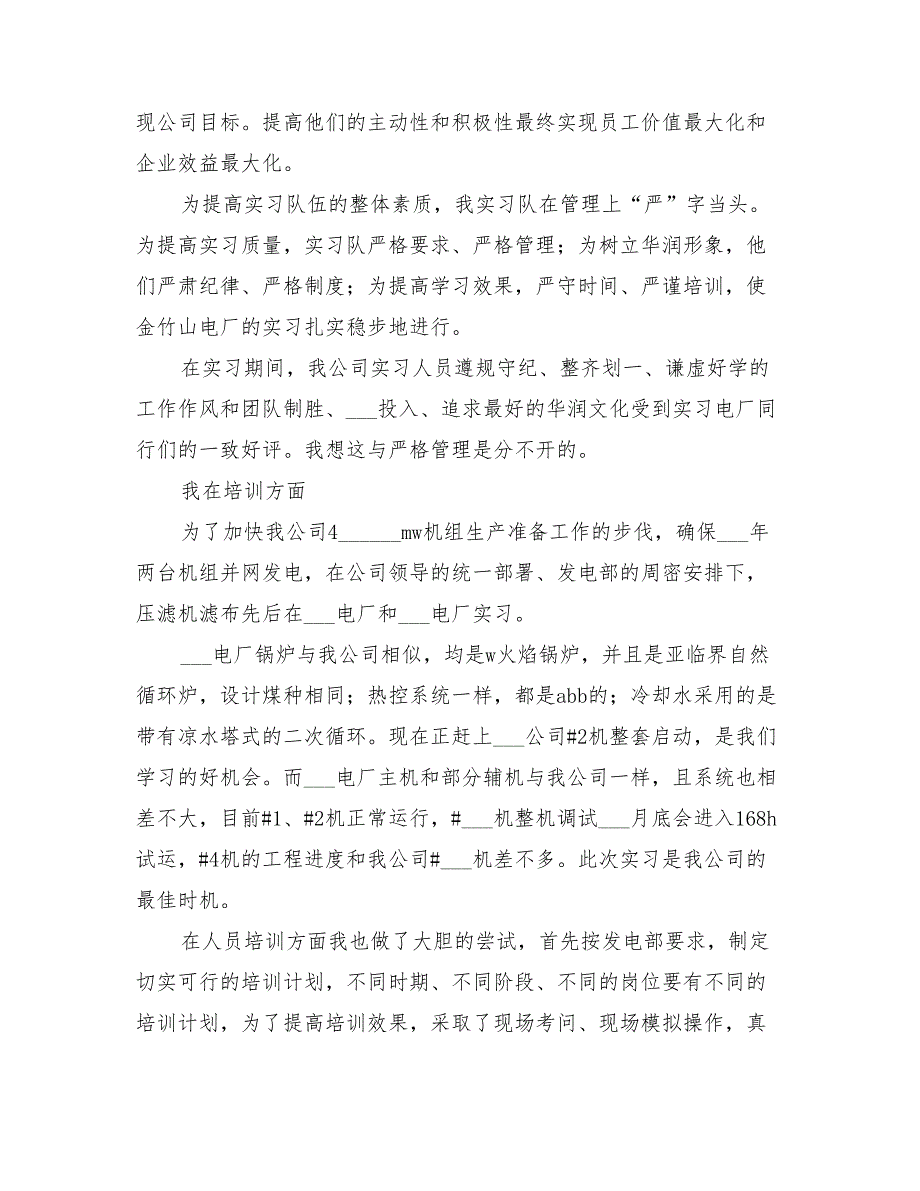 现公司目标。提高他们的主动性和积极性最终实现员工价值最大化和
企业效益最大化。
为提高实习队伍的整体素质，我实习队在管理上“严”字当头。
为提高实习质量，实习队严格要求、严格管理；为树立华润形象，他
们严肃纪律、严格制度；为提高学习效果，严守时间、严谨培训，使
金竹山电厂的实习扎实稳步地进行。
在实习期间，我公司实习人员遵规守纪、整齐划一、谦虚好学的
工作作风和团队制胜、___投入、追求最好的华润文化受到实习电厂同
行们的一致好评。我想这与严格管理是分不开的。
我在培训方面
为了加快我公司4______mw机组生产准备工作的步伐，确保___年
两台机组并网发电，在公司领导的统一部署、发电部的周密安排下，
压滤机滤布先后在___电厂和___电厂实习。
___电厂锅炉与我公司相似，均是w火焰锅炉，并且是亚临界自然
循环炉，设计煤种相同；热控系统一样，都是abb的；冷却水采用的是
带有凉水塔式的二次循环。现在正赶上___公司#2机整套启动，是我们
学习的好机会。而___电厂主机和部分辅机与我公司一样，且系统也相
差不大，目前#1、#2机正常运行，#___机整机调试___月底会进入168h
试运，#4机的工程进度和我公司#___机差不多。此次实习是我公司的
最佳时机。
在人员培训方面我也做了大胆的尝试，首先按发电部要求，制定
切实可行的培训计划，不同时期、不同阶段、不同的岗位要有不同的
培训计划，为了提高培训效果，采取了现场考问、现场模拟操作，真